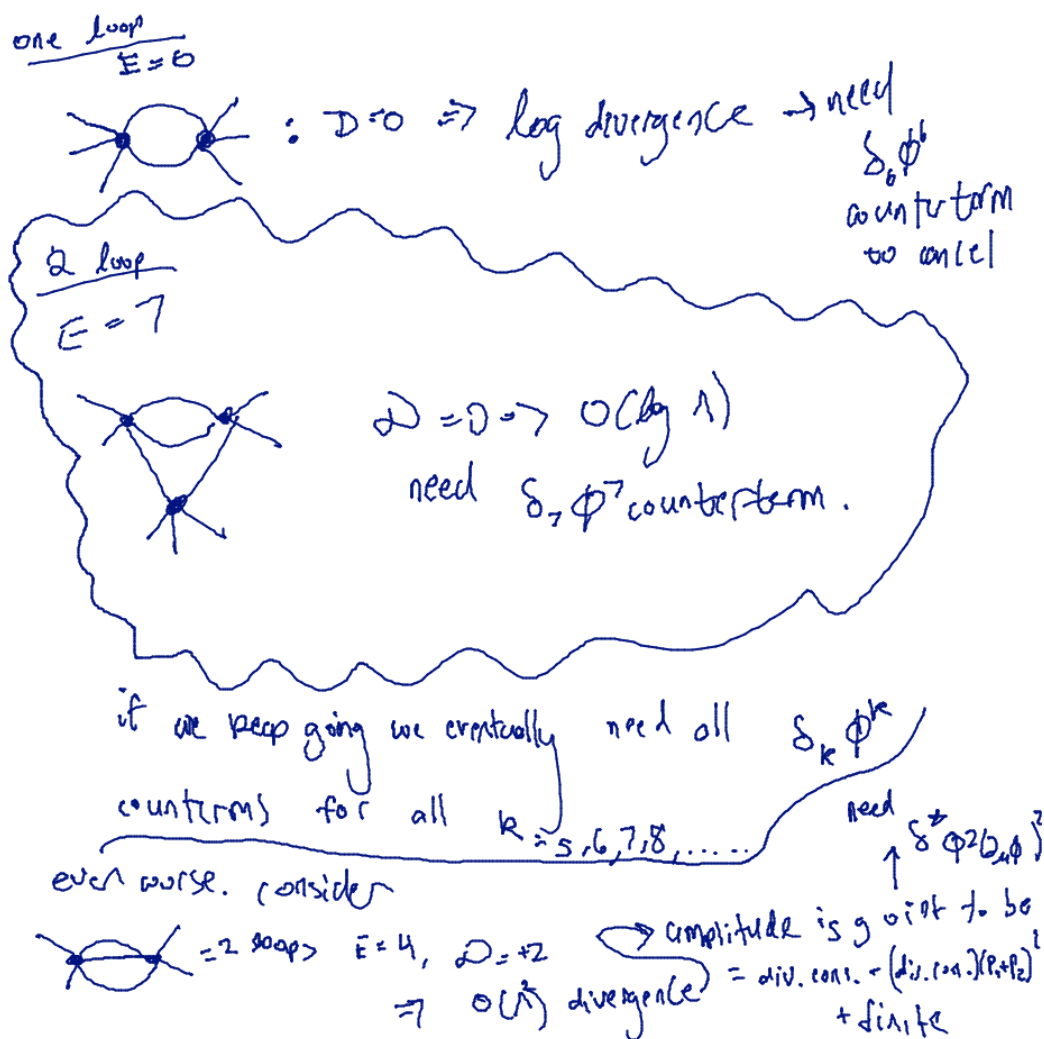 one loop
E=6
: D=0 => log divergence → need
δ₆ϕ⁶
counterterm
to cancel
2 loop
E=7
D=0 => O(log Λ)
need δ₇ϕ⁷ counterterm.
if we keep going we eventually need all δₖϕᵏ
counterms for all k=5,6,7,8,.....
even worse. consider
=2 loops E=4, D=+2
=> O(Λ²) divergence
need
δ* ϕ²(∂μϕ)²
↑
amplitude is goint to be
= div. cons. + (div. con.)(P₁+P₂)²
+ finite